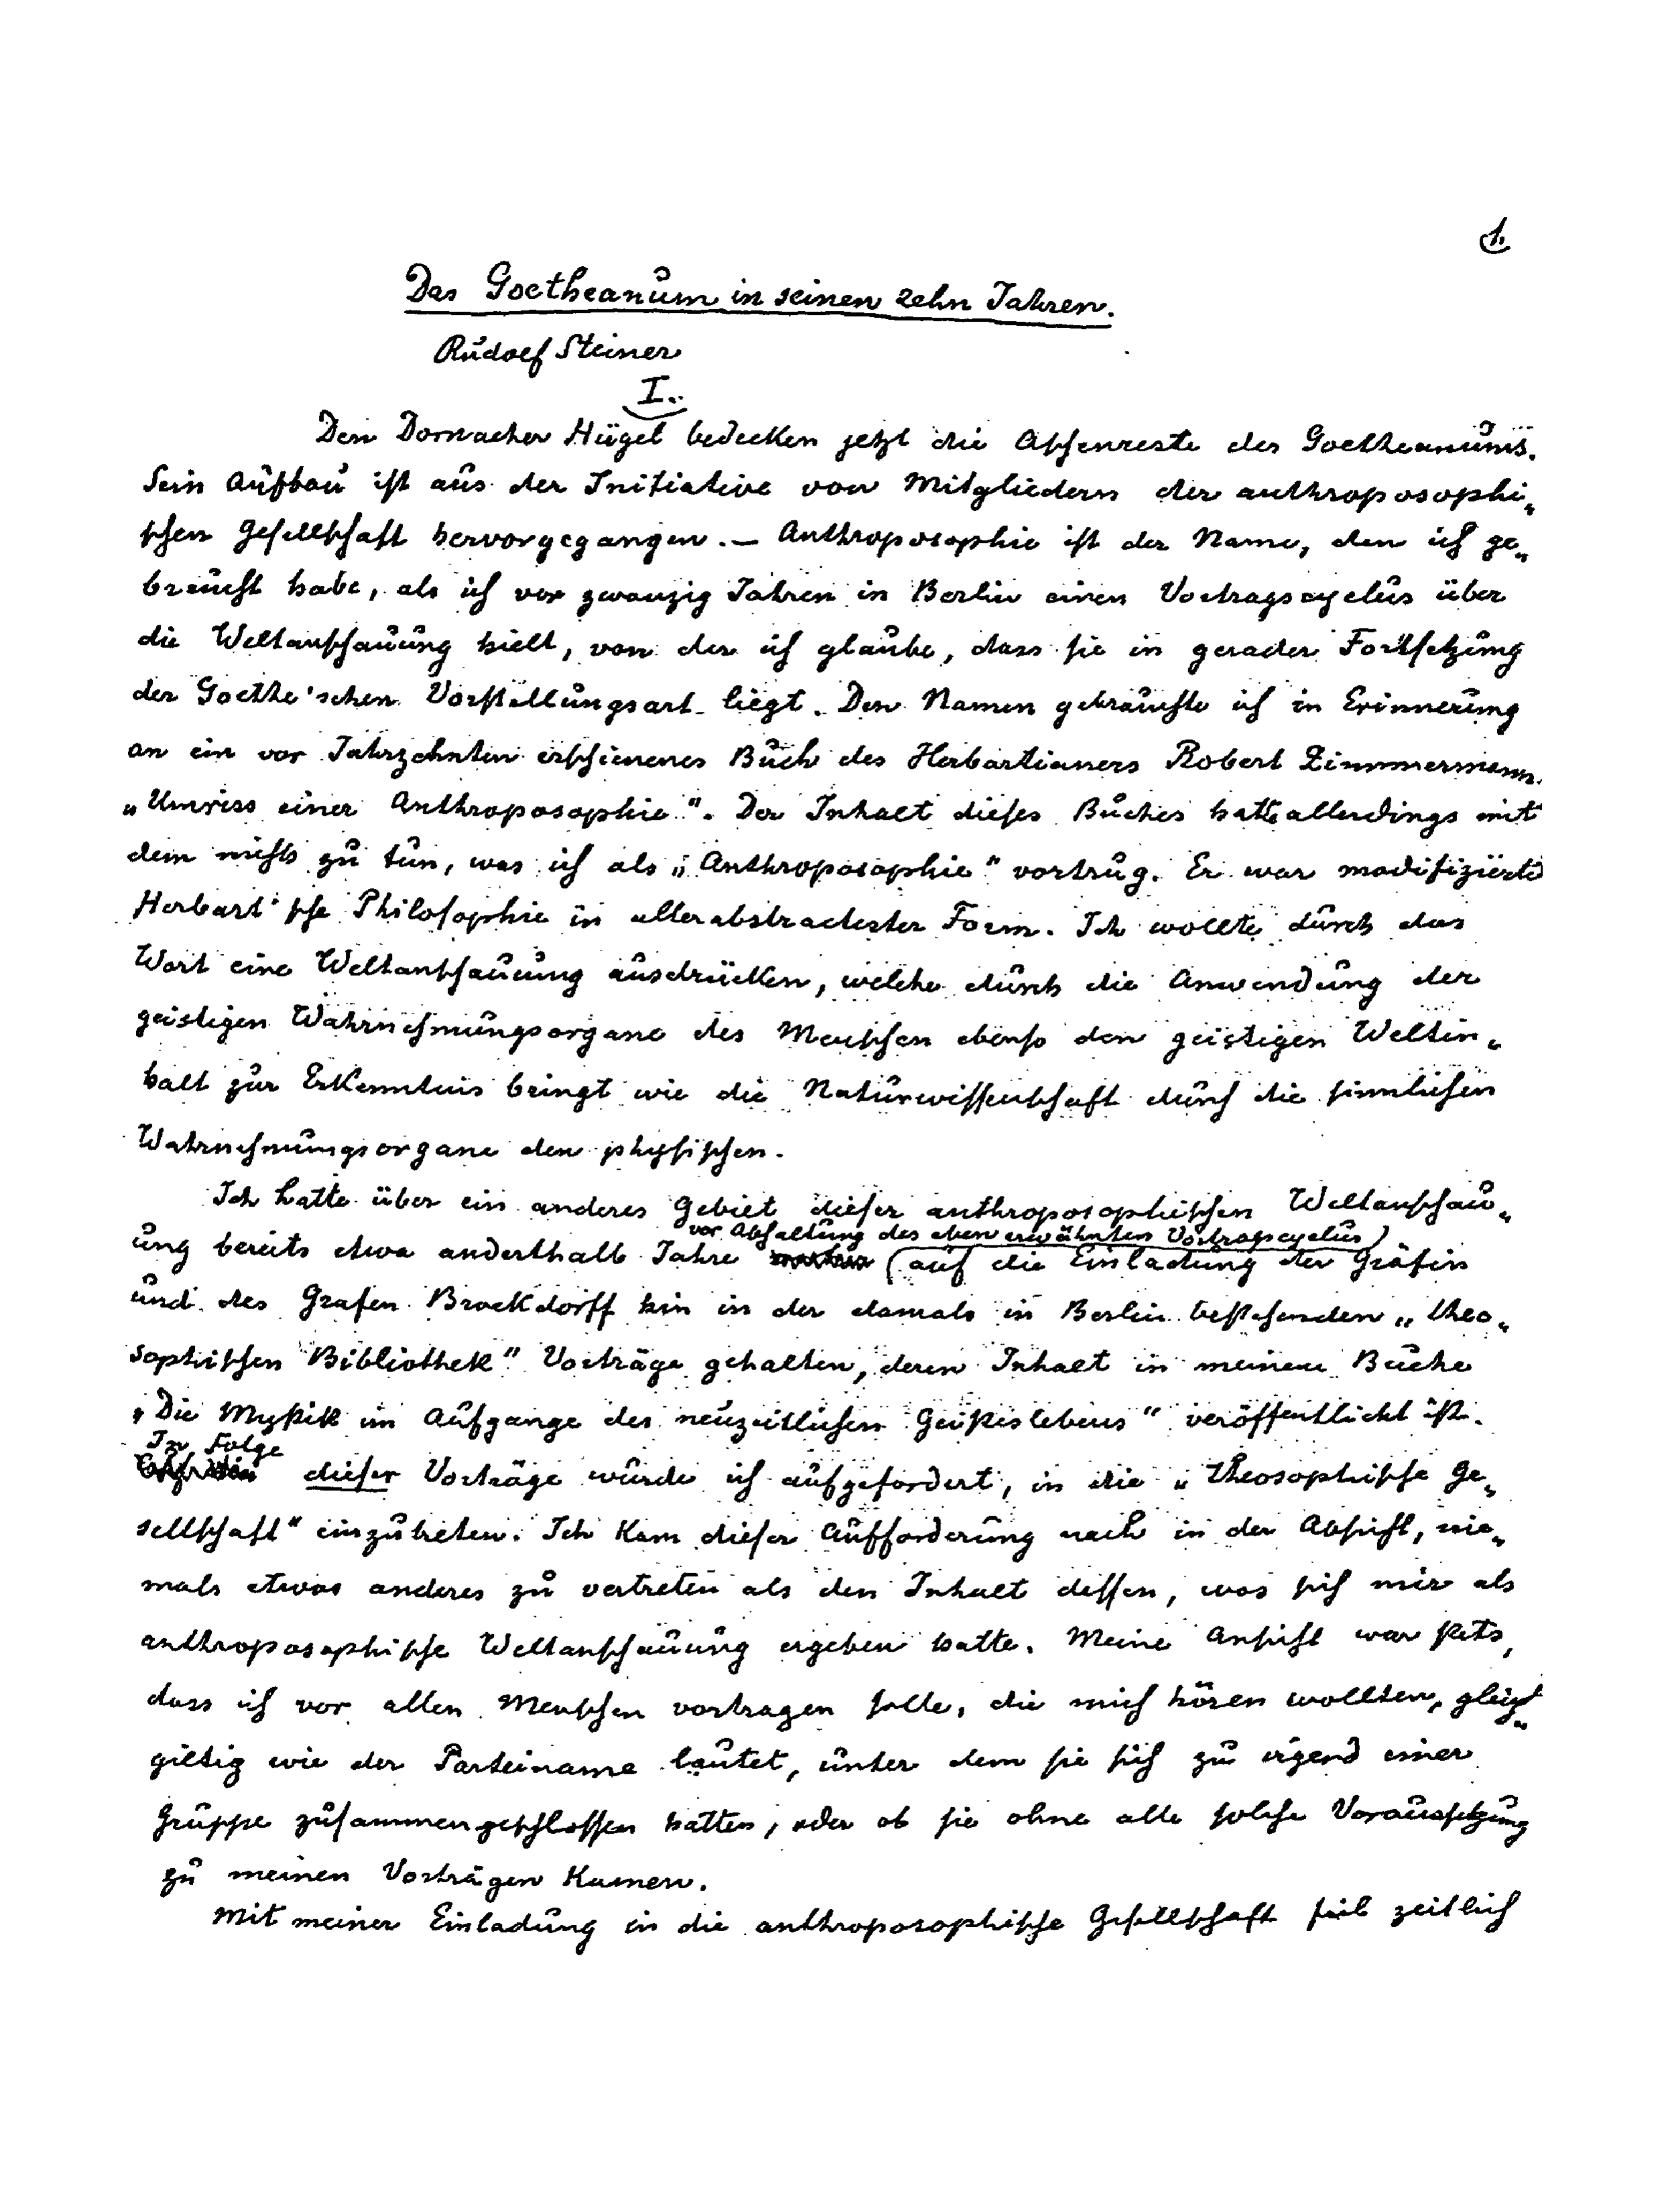 1.
Das Goetheanum in seinen zehn Jahren.
Rudolf Steiner
I.
Den Dornacher Hügel bedecken jetzt die Aschenreste des Goetheanums.
Sein Aufbau ist aus der Initiative von Mitgliedern der anthroposophi„
schen Gesellschaft hervorgegangen. — Anthroposophie ist der Name, den ich ge„
braucht habe, als ich vor zwanzig Jahren in Berlin einen Vortragscyclus über
die Weltanschauung hielt, von der ich glaube, dass sie in gerader Fortsetzung
der Goethe'schen Vorstellungsart liegt. Den Namen gebrauchte ich in Erinnerung
an ein vor Jahrzehnten erschienenes Buch des Herbartianers Robert Zimmermann
„Umriss einer Anthroposophie“. Der Inhalt dieses Buches hatte allerdings mit
dem nichts zu tun, was ich als „Anthroposophie“ vortrug. Er war modifizierte
Herbart'sche Philosophie in allerabstractester Form. Ich wollte durch das
Wort eine Weltanschauung ausdrücken, welche durch die Anwendung der
geistigen Wahrnehmungsorgane des Menschen ebenso den geistigen Weltin„
halt zur Erkenntnis bringt wie die Naturwissenschaft durch die sinnlichen
Wahrnehmungsorgane den physischen.
Ich hatte über ein anderes Gebiet dieser anthroposophischen Weltanschau„
vor Abhaltung des eben erwähnten Vortragscyclus)
ung bereits etwa anderthalb Jahre (auf die Einladung der Gräfin
und des Grafen Brockdorff hin in der damals in Berlin bestehenden „theo„
sophischen Bibliothek“ Vorträge gehalten, deren Inhalt in meinem Buche
„Die Mystik im Aufgange des neuzeitlichen Geisteslebens“ veröffentlicht ist.
In Folge
dieser Vorträge wurde ich aufgefordert, in die „Theosophische Ge„
sellschaft“ einzutreten. Ich kam dieser Aufforderung nach in der Absicht, nie„
mals etwas anderes zu vertreten als den Inhalt dessen, was sich mir als
anthroposophische Weltanschauung ergeben hatte. Meine Ansicht war stets,
dass ich vor allen Menschen vortragen solle, die mich hören wollten, gleich„
giltig wie der Parteiname lautet, unter dem sie sich zu irgend einer
Gruppe zusammengeschlossen hatten, oder ob sie ohne alle solche Voraussetzung
zu meinen Vorträgen kamen.
Mit meiner Einladung in die anthroposophische Gesellschaft fiel zeitlich